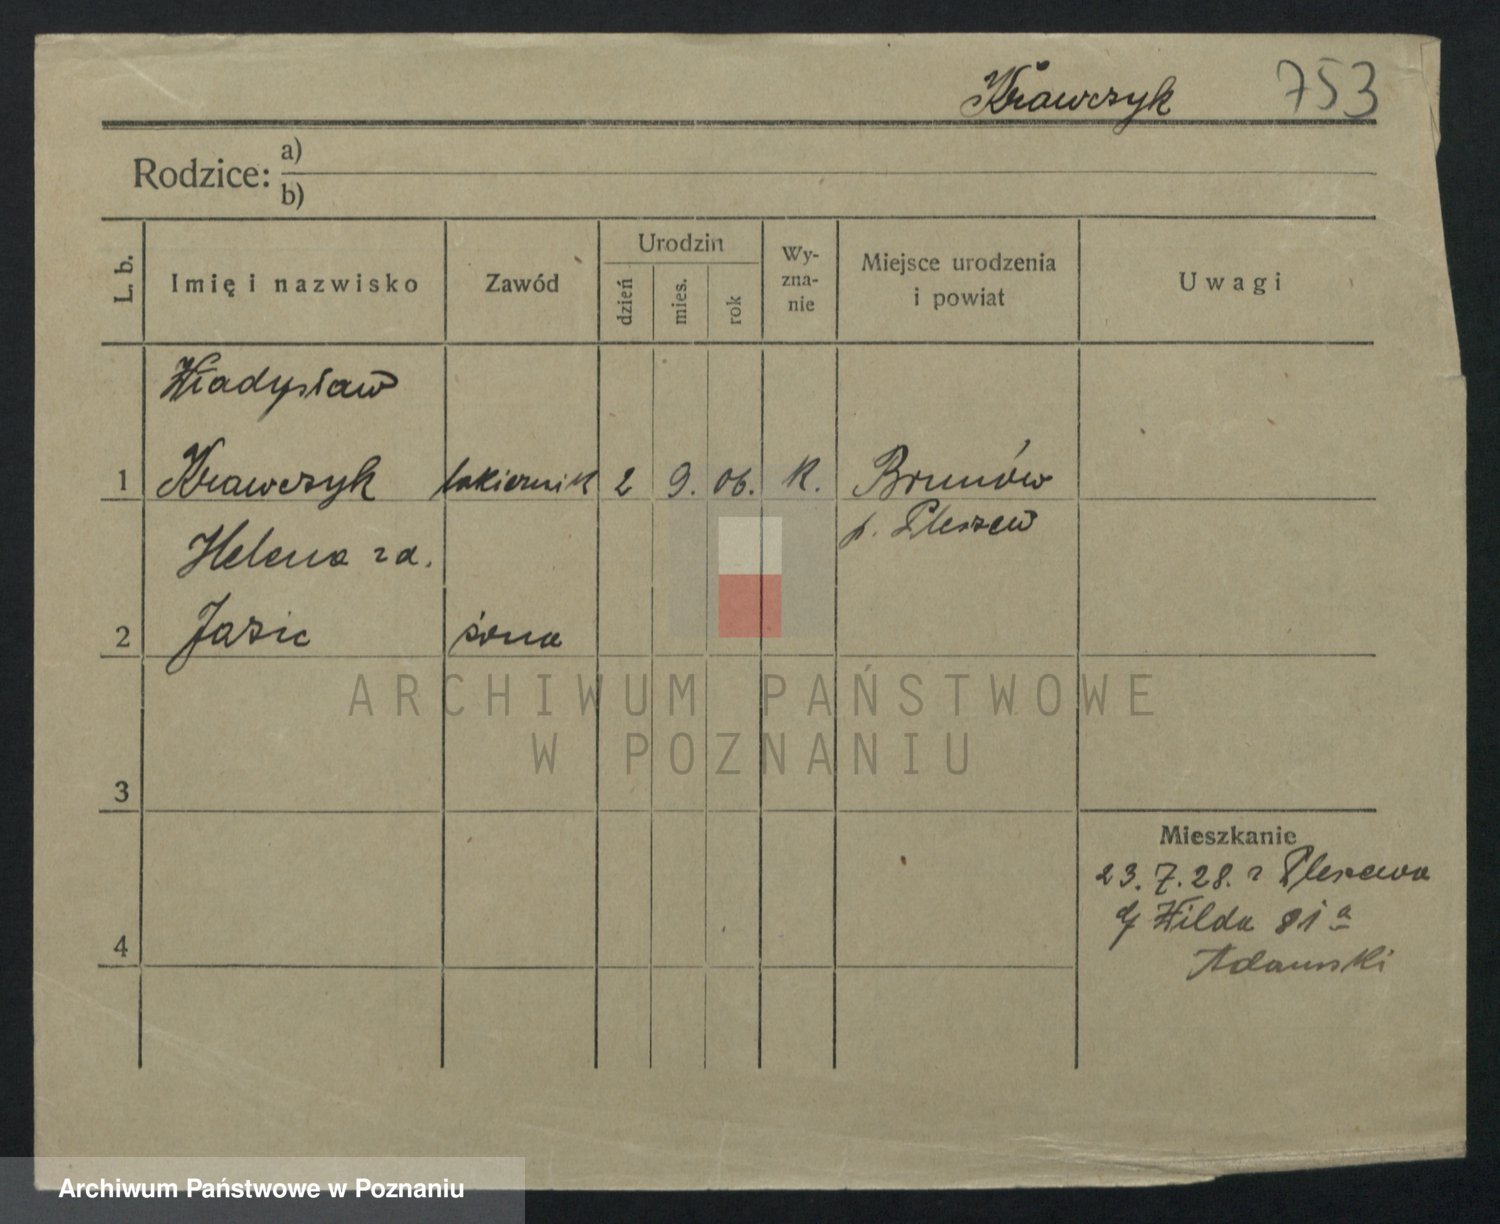 Krawczyk 753
Rodzice: a)
b)
L. b.
Imię i nazwisko
Zawód
Urodzin
dzień
mies.
rok
Wy-
zna-
nie
Miejsce urodzenia
i powiat
Uwagi
Władysław
1 Krawczyk lakiernik 2 9. 06. K. Brunów
p. Pleszew
Helena zd.
2 Jasic żona
ARCHIWUM PAŃSTWOWE
W POZNANIU
3
Mieszkanie
23.7.28. z Pleszewa
Wilda 81a
4
Adamski
Archiwum Państwowe w Poznaniu